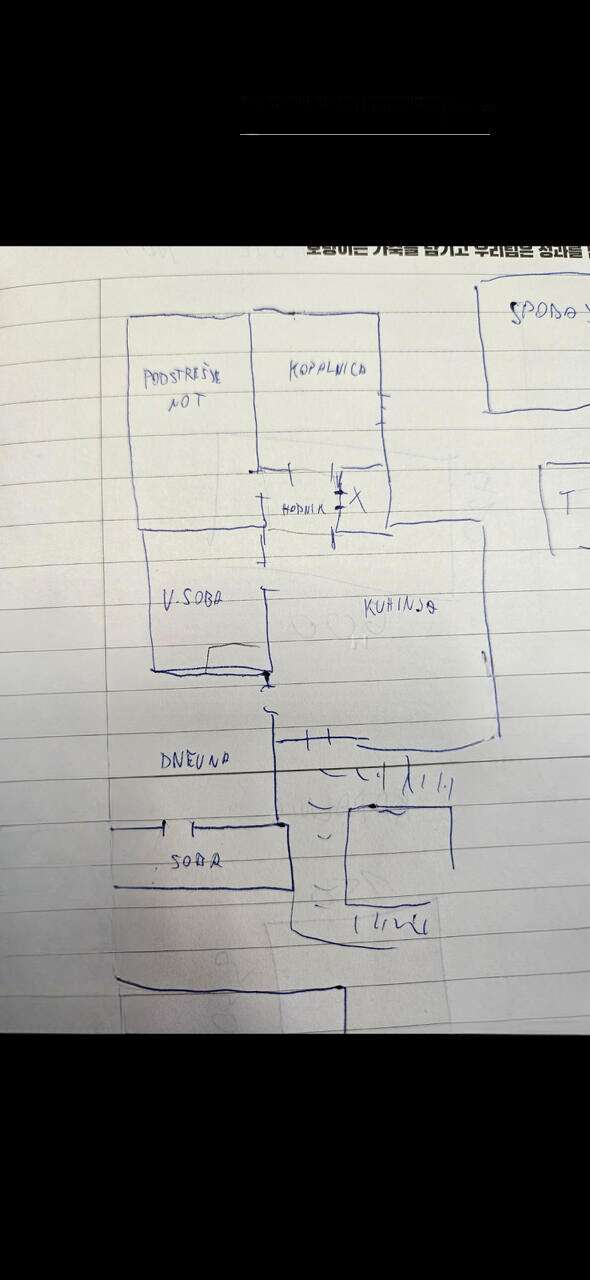 호랑이는 가죽을 남기고 우리팀은 성과를
SPODAJ
PODSTREŠJE
NOT
KOPALNICA
HODNIK X
T
V. SOBA
KUHINJA
DNEVNA
SOBA